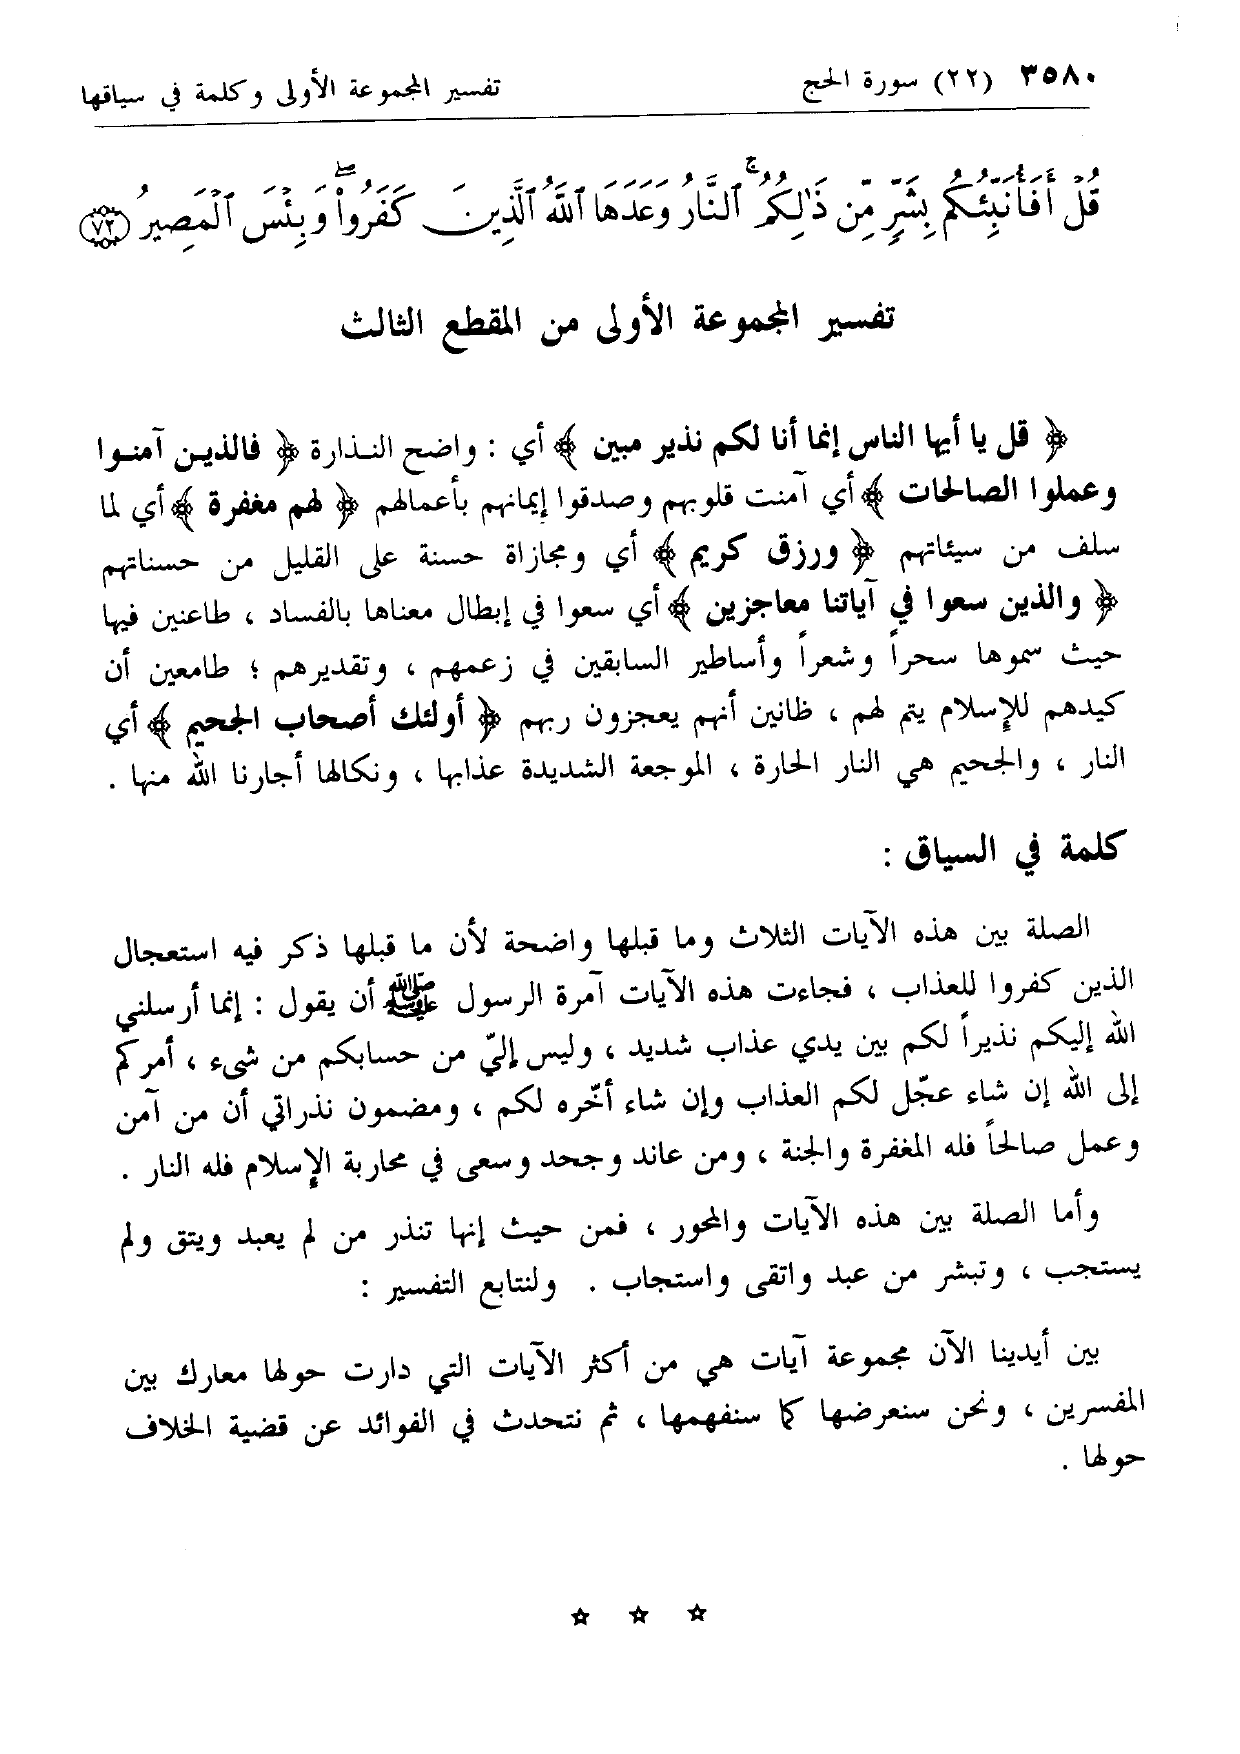 ٣٥٨٠ (٢٢) سورة الحج تفسير المجموعة الأولى وكلمة في سياقها
قُلْ أَفَأُنَبِّئُكُم بِشَرٍّ مِّن ذَٰلِكُمُ ۚ ٱلنَّارُ وَعَدَهَا ٱللَّهُ ٱلَّذِينَ كَفَرُوا۟ ۖ وَبِئْسَ ٱلْمَصِيرُ ﴿٧٢﴾
تفسير المجموعة الأولى من المقطع الثالث
﴿ قل يا أيها الناس إنما أنا لكم نذير مبين ﴾ أي : واضح النـذارة ﴿ فالذيـن آمنـوا
وعملوا الصالحات ﴾ أي آمنت قلوبهم وصدقوا إيمانهم بأعمالهم ﴿ لهم مغفرة ﴾ أي لما
سلف من سيئاتهم ﴿ ورزق كريم ﴾ أي ومجازاة حسنة على القليل من حسناتهم
﴿ والذين سعوا في آياتنا معاجزين ﴾ أي سعوا في إبطال معناها بالفساد ، طاعنين فيها
حيث سموها سحراً وشعراً وأساطير السابقين في زعمهم ، وتقديرهم ؛ طامعين أن
كيدهم للإسلام يتم لهم ، ظانين أنهم يعجزون ربهم ﴿ أولئك أصحاب الجحيم ﴾ أي
النار ، والجحيم هي النار الحارة ، الموجعة الشديدة عذابها ، ونكالها أجارنا الله منها .
كلمة في السياق :
الصلة بين هذه الآيات الثلاث وما قبلها واضحة لأن ما قبلها ذكر فيه استعجال
الذين كفروا للعذاب ، فجاءت هذه الآيات آمرة الرسول ﷺ أن يقول : إنما أرسلني
الله إليكم نذيراً لكم بين يدي عذاب شديد ، وليس إليّ من حسابكم من شيء ، أمركم
إلى الله إن شاء عجّل لكم العذاب وإن شاء أخّره لكم ، ومضمون نذراتي أن من آمن
وعمل صالحاً فله المغفرة والجنة ، ومن عاند وجحد وسعى في محاربة الإسلام فله النار .
وأما الصلة بين هذه الآيات والمحور ، فمن حيث إنها تنذر من لم يعبد ويتق ولم
يستجب ، وتبشر من عبد واتقى واستجاب . ولنتابع التفسير :
بين أيدينا الآن مجموعة آيات هي من أكثر الآيات التي دارت حولها معارك بين
المفسرين ، ونحن سنعرضها كما سنفهمها ، ثم نتحدث في الفوائد عن قضية الخلاف
حولها .
☆ ☆ ☆